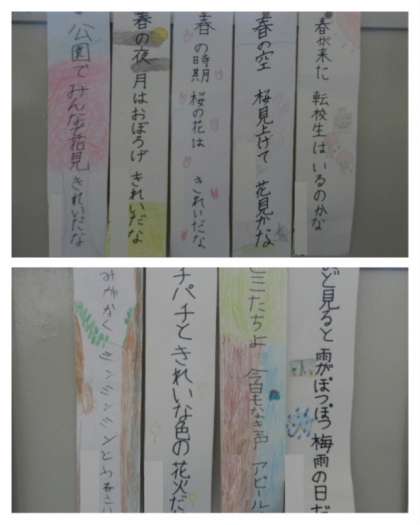 春が来た 転校生はいるのかな
春の空 桜見上げて 花見かな
春の時期 桜の花は きれいだな
春の夜 月はおぼろげ きれいだな
公園で みんなで花見 きれいだな
見ると 雨がぽつぽつ 梅雨の日だ
たちよ 今日もなき声 アピール
チパチと きれいな色の 花火だ
ミンミンミンと